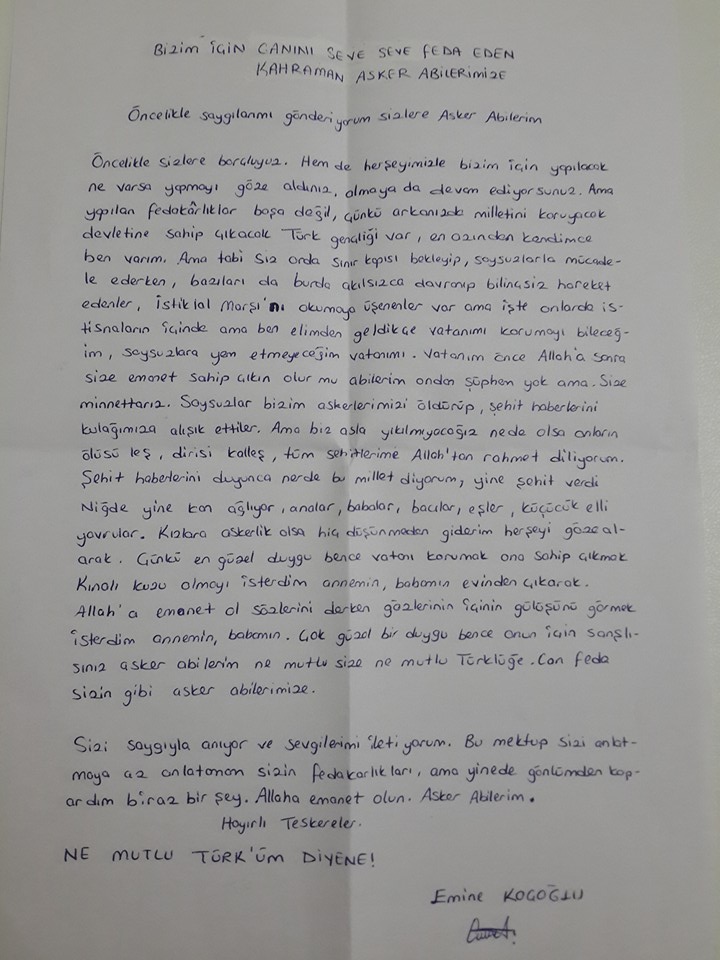 BİZİM İÇİN CANINI SEVE SEVE FEDA EDEN
KAHRAMAN ASKER ABİLERİMİZE
Öncelikle saygılarımı gönderiyorum sizlere Asker Abilerim
Öncelikle sizlere borçluyuz. Hem de herşeyimizle bizim için yapılacak
ne varsa yapmayı göze aldınız, almaya da devam ediyorsunuz. Ama
yapılan fedakârlıklar boşa değil, çünkü arkanızda milletini koruyacak
devletine sahip çıkacak Türk gençliği var, en azından kendimce
ben varım. Ama tabi siz orda sınır kapısı bekleyip, soysuzlarla mücade-
le ederken, bazıları da burda akılsızca davranıp bilinçsiz hareket
edenler, İstiklal Marşı'nı okumaya üşenenler var ama işte onlarda is-
tisnaların içinde ama ben elimden geldikçe vatanımı korumayı bileceğ-
im, soysuzlara yem etmeyeceğim vatanımı. Vatanım önce Allah'a sonra
size emanet sahip çıkın olur mu abilerim ondan şüphem yok ama. Size
minnettarız. Soysuzlar bizim askerlerimizi öldürüp, şehit haberlerini
kulağımıza alışık ettiler. Ama biz asla yıkılmıyacağız nede olsa onların
ölüsü leş, dirisi kalleş, tüm şehitlerime Allah'tan rahmet diliyorum.
Şehit haberlerini duyunca nerde bu millet diyorum, yine şehit verdi
Niğde yine kan ağlıyor, analar, babalar, bacılar, eşler, küçücük elli
yavrular. Kızlara askerlik olsa hiç düşünmeden giderim herşeyi göze al-
arak. Çünkü en güzel duygu bence vatanı korumak ona sahip çıkmak
Kınalı kuzu olmayı isterdim annemin, babamın evinden çıkarak.
Allah'a emanet ol sözlerini derken gözlerinin içinin gülüşünü görmek
isterdim annemin, babamın. Çok güzel bir duygu bence onun için şanslı-
sınız asker abilerim ne mutlu size ne mutlu Türklüğe. Can feda
sizin gibi asker abilerimize.
Sizi saygıyla anıyor ve sevgilerimi iletiyorum. Bu mektup sizi anlat-
maya az anlatamam sizin fedakarlıkları, ama yinede gönlümden kop-
ardım biraz bir şey. Allaha emanet olun. Asker Abilerim.
Hayırlı Teskereler.
NE MUTLU TÜRK'ÜM DİYENE!
Emine KOÇOĞLU